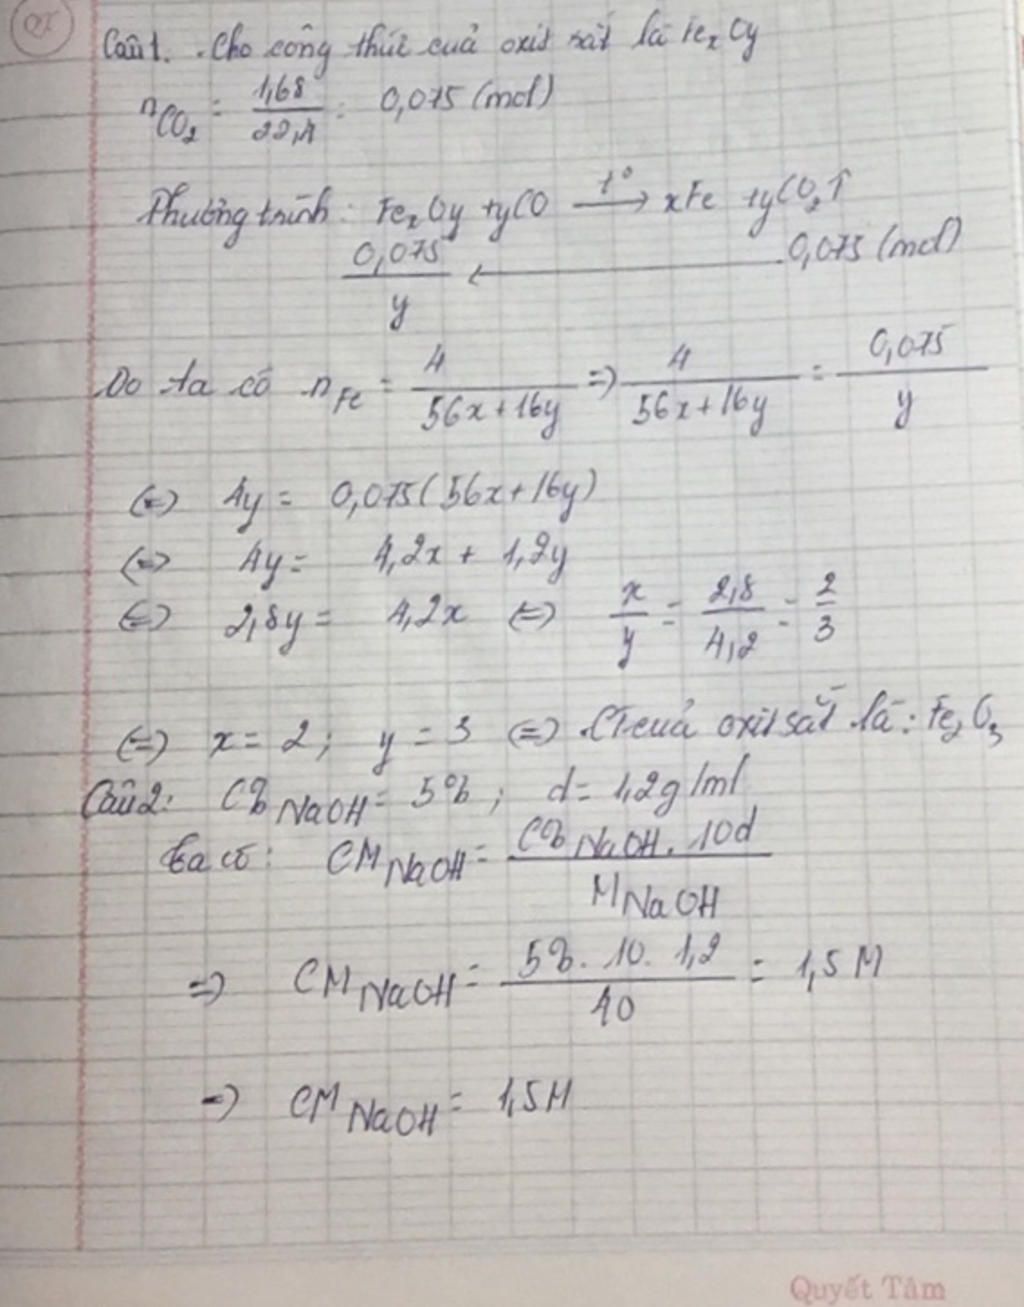 Câu 1. Cho công thức cuả oxit sắt là FexOy
nCO2 = 1,68/22,4 = 0,075 (mol)
Phương trình: FexOy + yCO t°→ xFe + yCO2↑
0,075/y ← 0,075 (mol)
Do ta có nFe = 4/(56x+16y) => 4/(56x+16y) = 0,075/y
(=) 4y = 0,075(56x+16y)
(=) 4y = 4,2x + 1,2y
(=) 2,8y = 4,2x (=) x/y = 2,8/4,2 = 2/3
(=) x = 2; y = 3 (=) CT cuả oxit sắt là: Fe2O3
Câu 2: C% NaOH = 5%; d = 1,2g/ml
Ta có: CM NaOH = C% NaOH . 10d / M NaOH
=> CM NaOH = 5% . 10 . 1,2 / 40 = 1,5 M
=> CM NaOH = 1,5M
Quyết Tâm